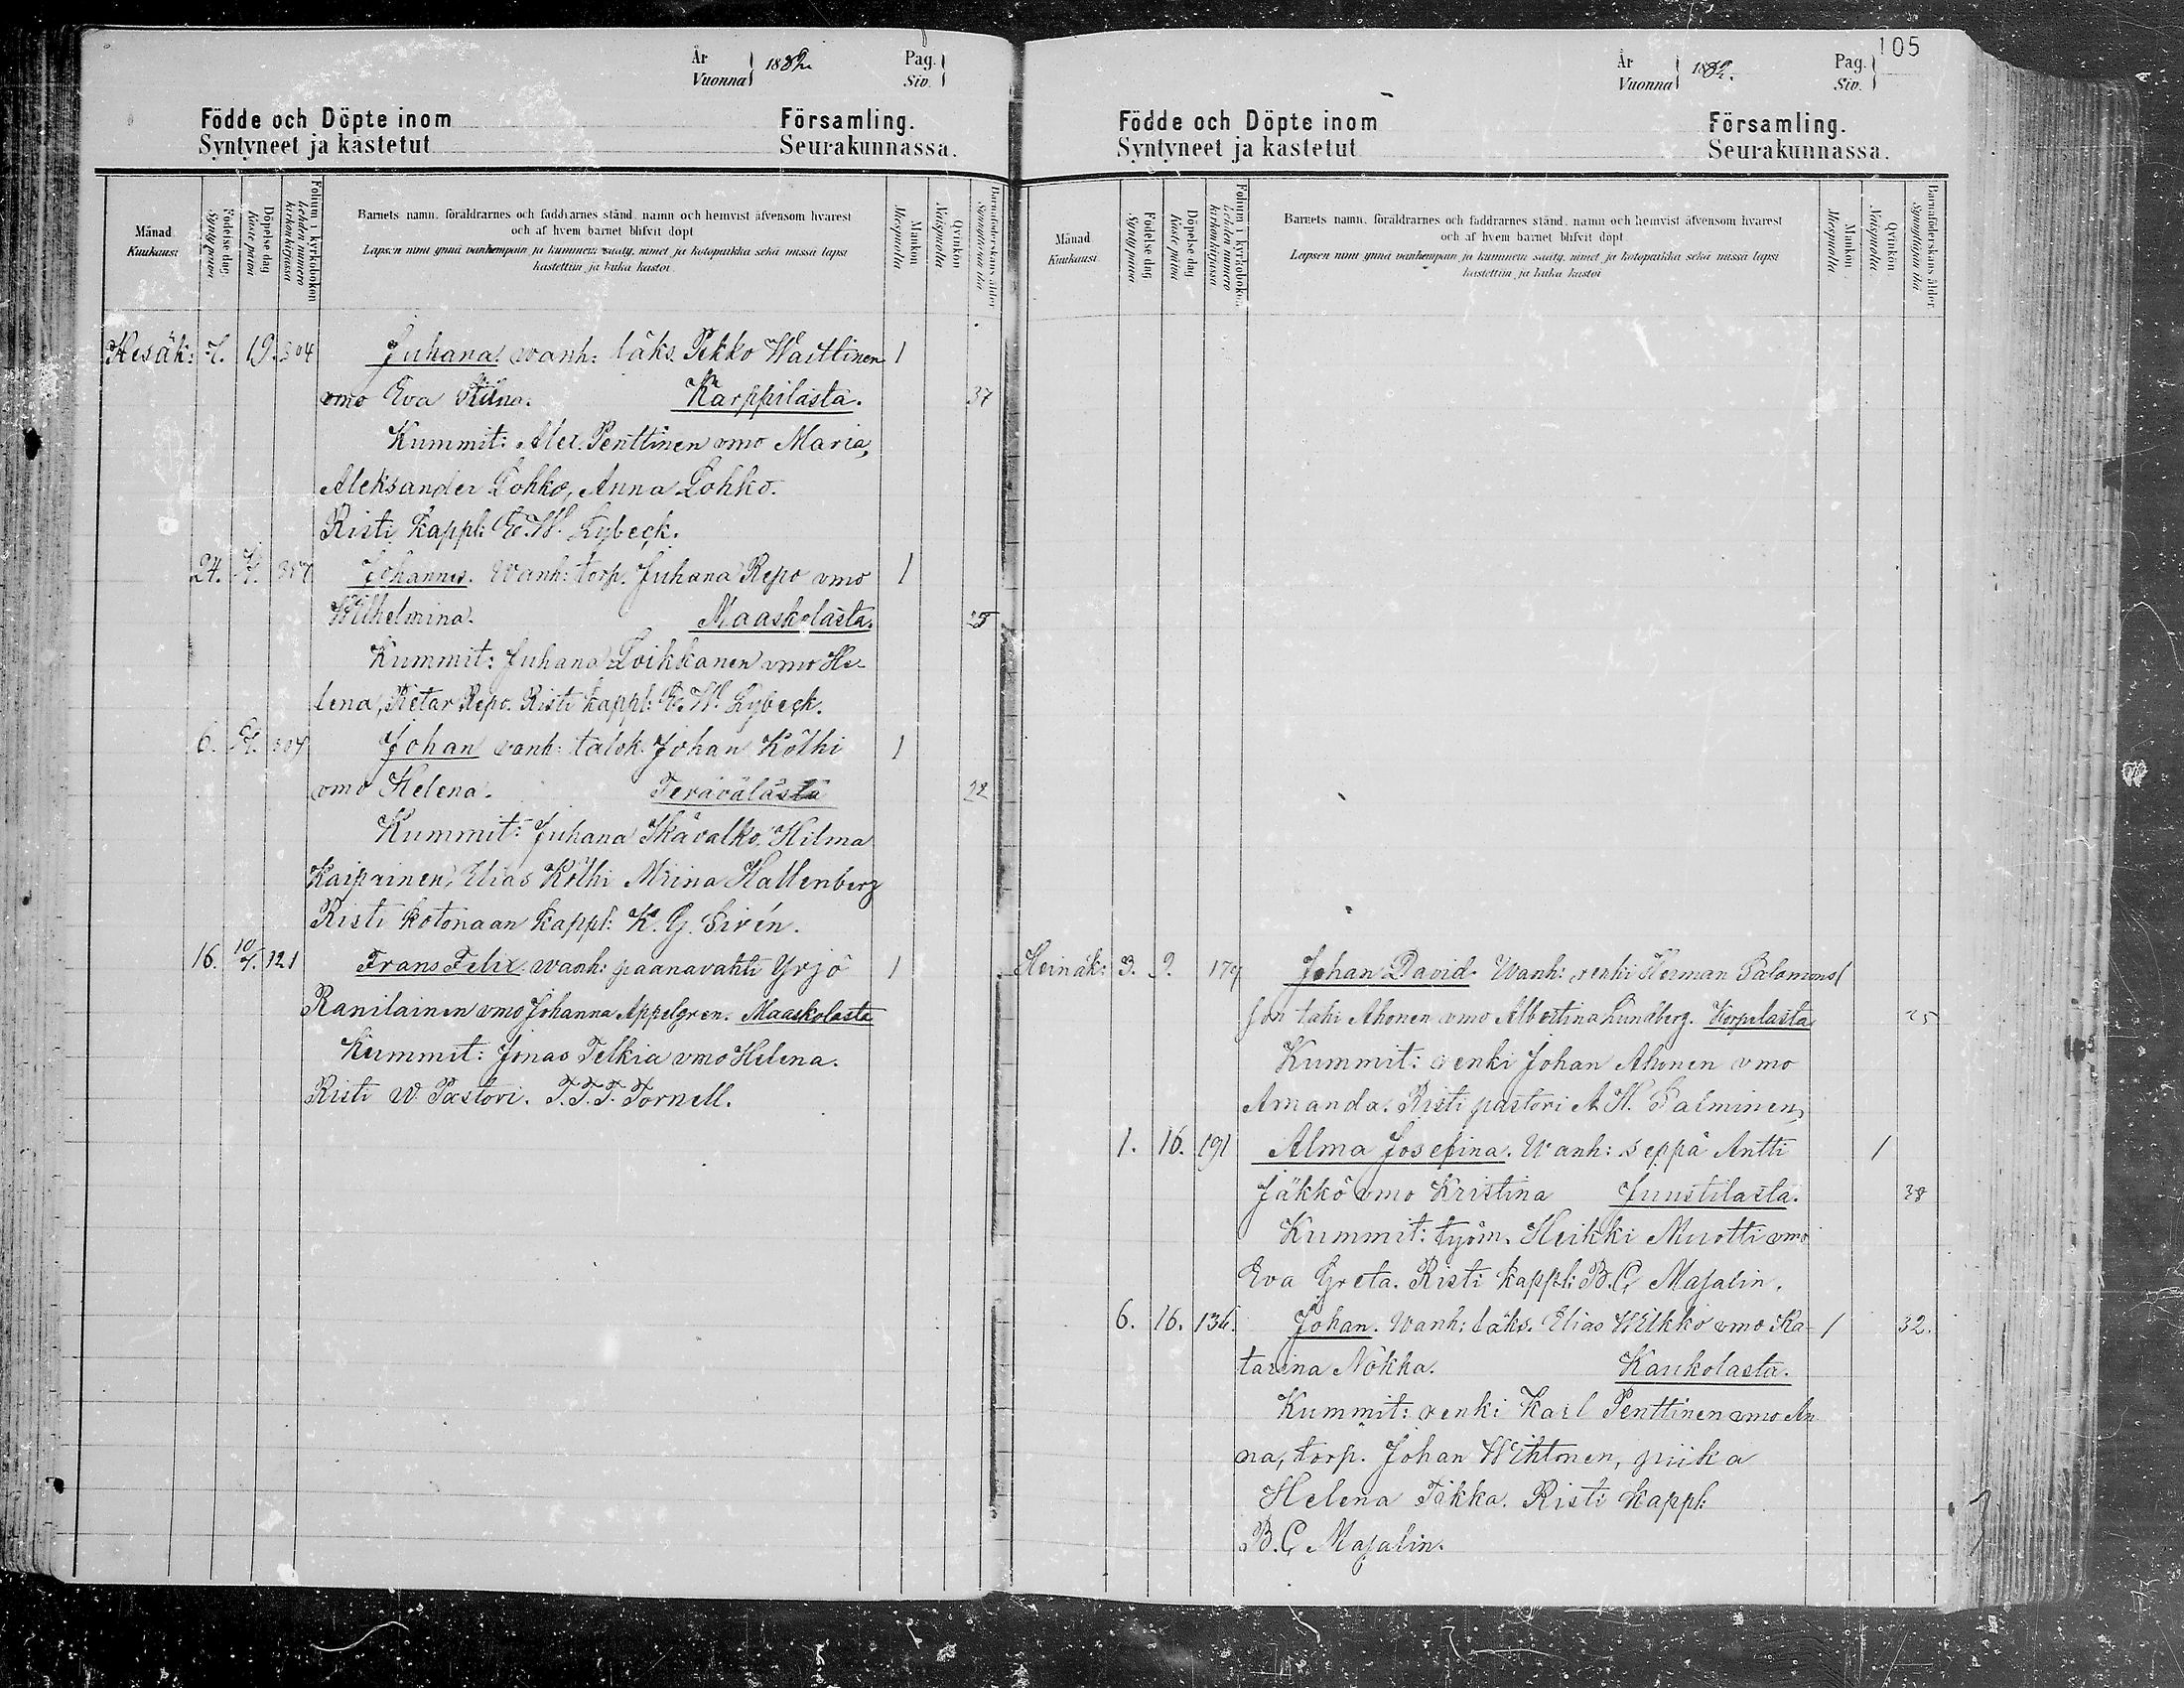 År
Vuonna
1882.
Pag.
Siv.
Födde och Döpte inom Församling.
Syntyneet ja kastetut Seurakunnassa.
Månad
Kuukausi
Födelse dag
Syntypäivä
Döpelse dag
Kaste päivä
Folium i kyrkoboken
Lehden numero kirkonkirjassa
Barnets namn, föräldrarnes och faddrarnes stånd, namn och hemvist äfvensom hvarest
och af hvem barnet blifvit döpt
Lapsen nimi ynnä vanhempain ja kummein sääty, nimet ja kotopaikka sekä missä lapsi
kastettiin ja kuka kastoi.
Mankön
Miespuolia
Qvinkön
Naispuolia
Barnaföderskans ålder
Kesäk: 7. 19. 304 Juhana wanh: läks. Pekko Waittinen 1
vmo Eva Stiina. Karppilasta. 37
Kummit: Alex. Penttinen vmo Maria,
Aleksander Lohko, Anna Lohko.
Risti kappl: E. W. Lybeck.
24. 387 Johannes. Wanh: torp. Juhana Repo vmo 1
Wilhelmina. Maaskolasta. 25
Kummit: Juhana Loikkanen vmo He-
lena, Petar Repo. Risti kappl: E. W. Lybeck.
6. Johan vanh: talok. Johan Köthi 1
vmo Helena. Terävälästä 22
Kummit: Juhana Ikävalko, Hilma
Kaipainen, Elias Köthi Miina Hallenberg
Risti kotonaan kappl: K. G. Sirén.
16. 10/7. 121 Frans Felix. wanh: paanavahti Yrjö 1
Ranilainen vmo Johanna Appelgren. Maaskolasta
Kummit: Jonas Telkia vmo Helena.
Risti W. Pastori. T.T.T. Tornell.
105
År
Vuonna
1882.
Pag.
Siv.
Födde och Döpte inom Församling.
Syntyneet ja kastetut Seurakunnassa.
Månad
Kuukausi
Födelse dag
Syntypäivä
Döpelse dag
Kaste päivä
Folium i kyrkoboken
Lehden numero kirkonkirjassa
Barnets namn, föräldrarnes och faddrarnes stånd, namn och hemvist äfvensom hvarest
och af hvem barnet blifvit döpt
Lapsen nimi ynnä vanhempain ja kummein sääty, nimet ja kotopaikka sekä missä lapsi
kastettiin ja kuka kastoi
Mankön
Miespuolia
Qvinkön
Naispuolia
Barnaföderskans ålder
Heinäk: 3. 9. 179 Johan David. Wanh: renki Herman Salomons 1
son tahi Ahonen vmo Albertina Lundberg. Korpelasta 25
Kummit: renki Johan Ahonen vmo
Amanda. Risti pastori A. H. Salminen,
1. 16. 191 Alma Josefina. Wanh: seppä Antti 1
Jäkkö vmo Kristina Juustilasta. 38
Kummit: työm. Heikki Muotti vmo
Eva Greta. Risti kappl: B. C. Majalin.
6. 16. 136. Johan. Wanh: läks. Elias Wilkko vmo Ka- 1 32.
tarina Nokka. Kaukolasta.
Kummit: renki Karl Penttinen vmo An
na, torp. Johan Wihtonen, piika
Helena Täkka. Risti kappl:
B. C. Majalin.